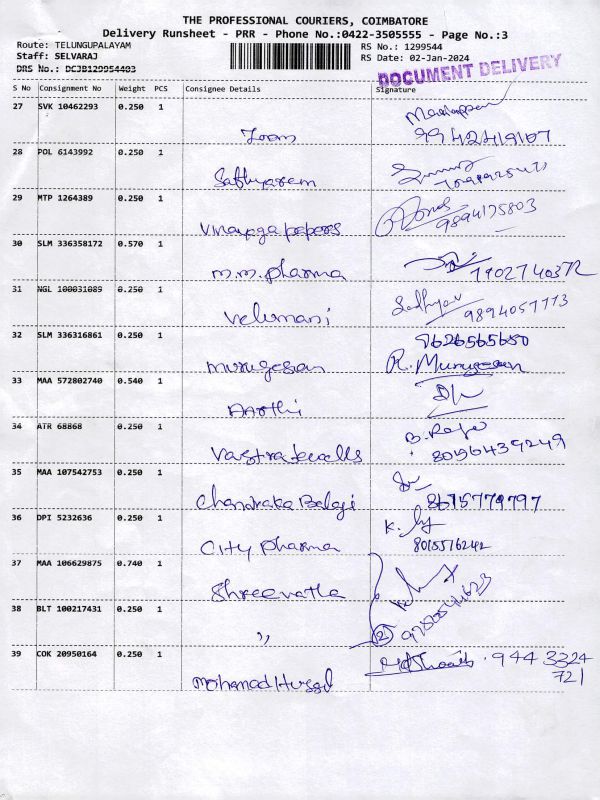 THE PROFESSIONAL COURIERS, COIMBATORE
Delivery Runsheet - PRR - Phone No.:0422-3505555 - Page No.:3
Route: TELUNGUPALAYAM
Staff: SELVARAJ
DRS No.: DCJB129954403
RS No.: 1299544
RS Date: 02-Jan-2024
DOCUMENT DELIVERY
S No Consignment No Weight PCS Consignee Details Signature
27 SVK 10462293 0.250 1
9942419107
28 POL 6143992 0.250 1
Sathyaram
29 MTP 1264389 0.250 1
Vinayaga papers 9894175803
30 SLM 336358172 0.570 1
m.m. pharma
31 NGL 100031089 0.250 1
Velumani 9894057773
32 SLM 336316861 0.250 1
9626565650
murugesan R. Murugesan
33 MAA 572802740 0.540 1
Aarthi
34 ATR 68868 0.250 1
B. Raja
80196439249
35 MAA 107542753 0.250 1
Chandraka Balaji 8675779797
36 DPI 5232636 0.250 1
K.
City pharma 8015516242
37 MAA 106629875 0.740 1
Shreevatla
38 BLT 100217431 0.250 1
,, (2)
39 COK 20950164 0.250 1
944 3324
721
mohamad